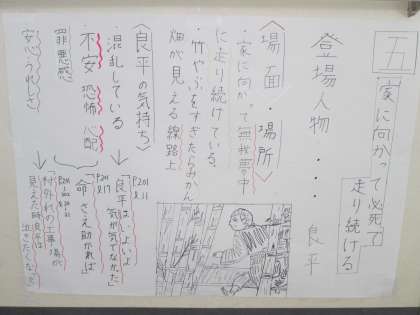 五 家に向かって必死で
走り続ける
登場人物・・・良平
〈場面・場所〉
・家に向かって無我夢中
に走り続けている。
・竹やぶをすぎたらみかん
畑が見える線路上
〈良平の気持ち〉
・混乱している
・不安 恐怖 心配
罪悪感
安心・うれしさ
P201 ℓ11
「良平は、いよいよ
気が気でなかった」
P201 ℓ17
「命さえ助かれば」
「村外れの工事場が
見えた時良平は
泣きたくなった」